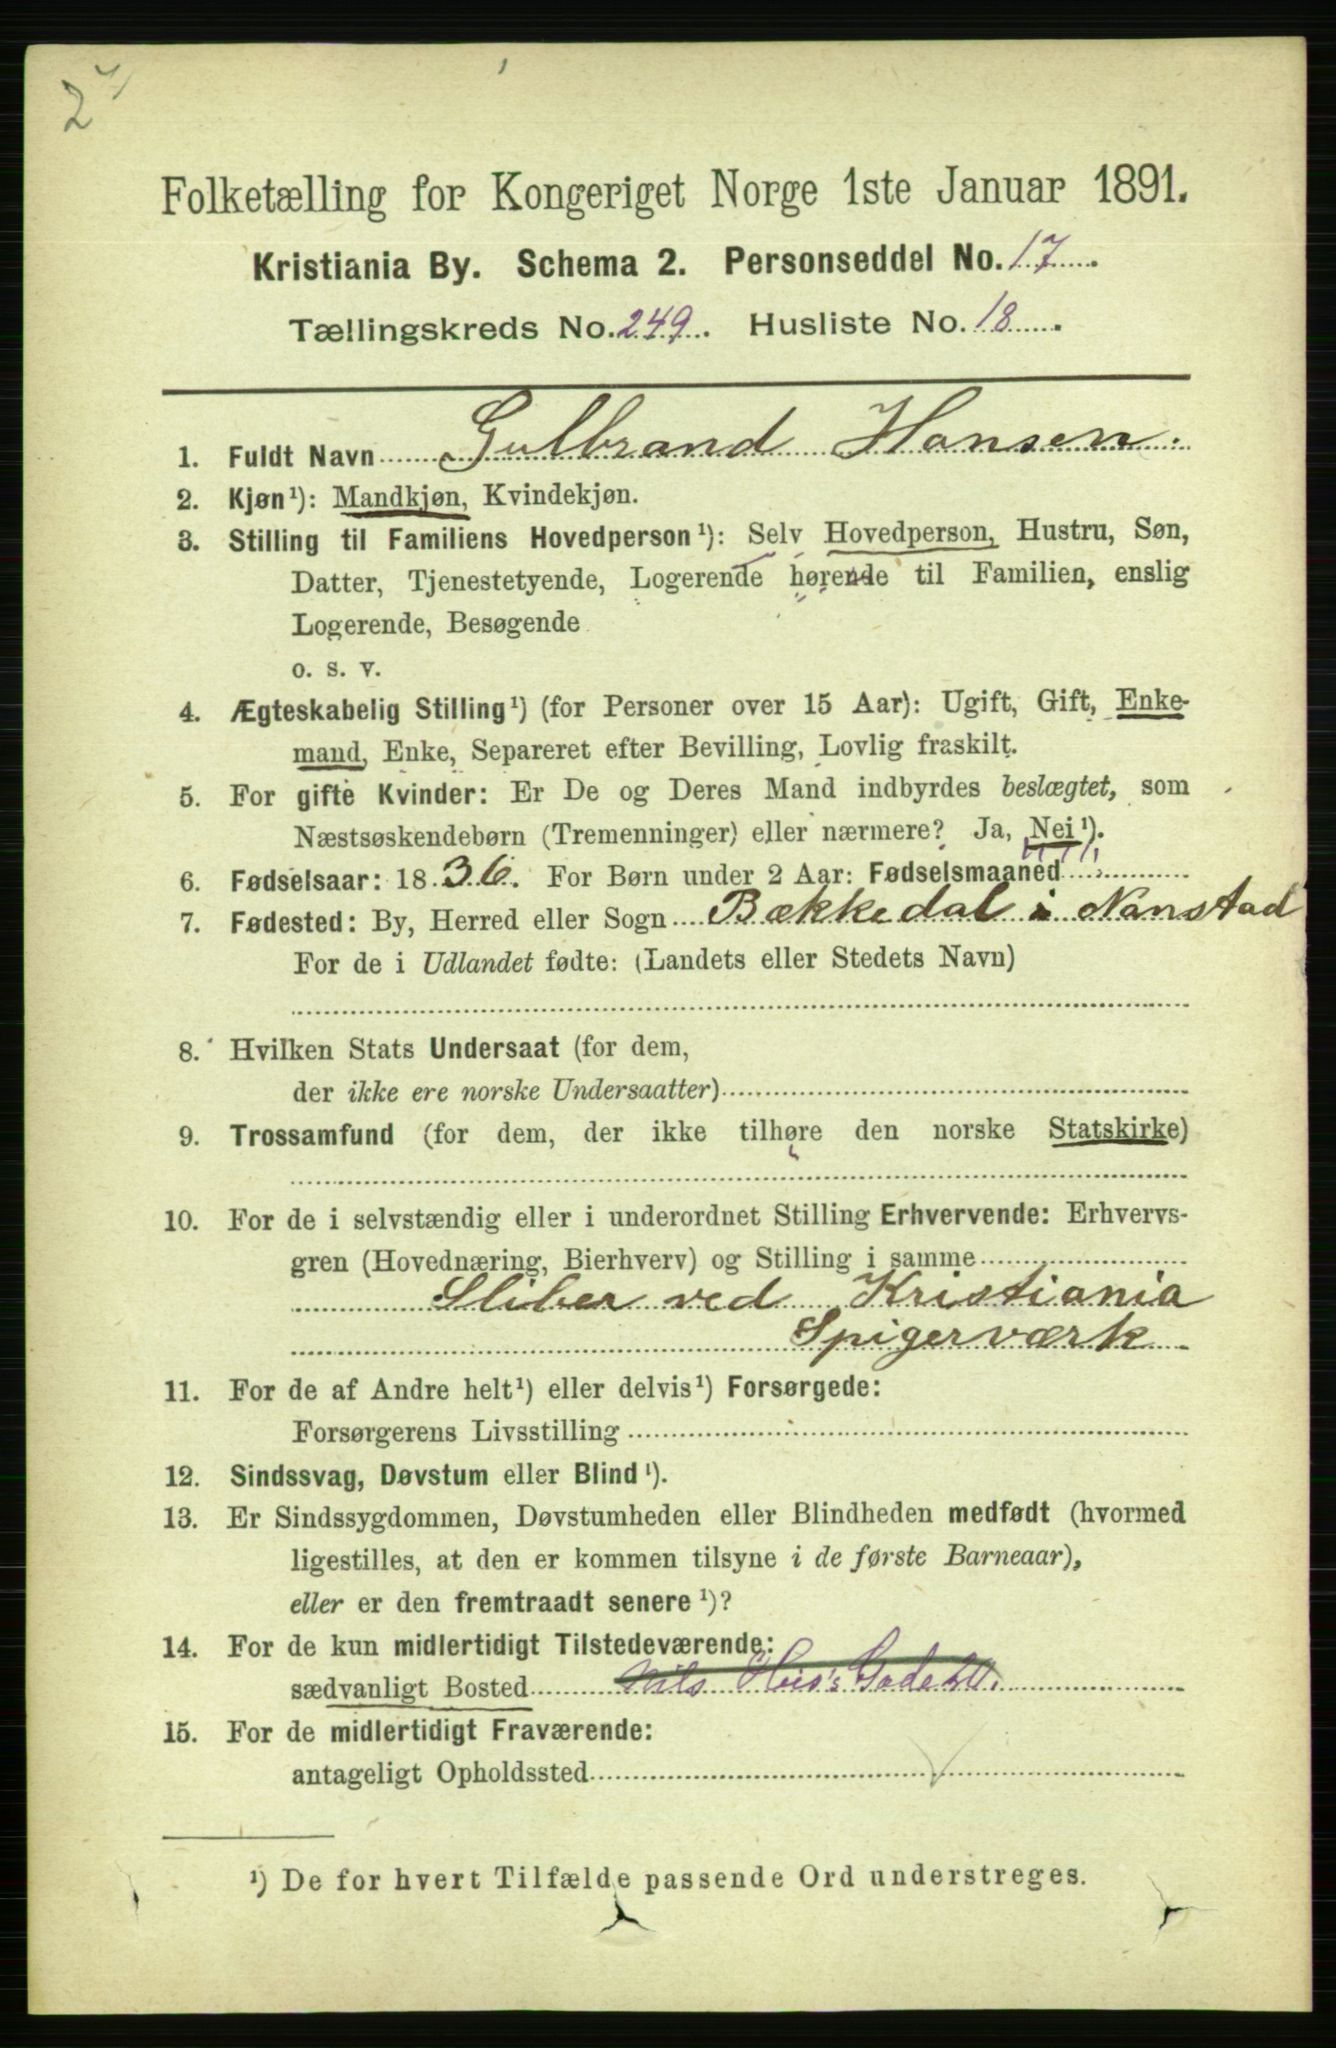 2
Folketælling for Kongeriget Norge 1ste Januar 1891.
Kristiania By. Schema 2. Personseddel No. 17
Tællingskreds No. 249. Husliste No. 18
1. Fuldt Navn Gulbrand Hansen.
2. Kjøn¹): Mandkjøn, Kvindekjøn.
3. Stilling til Familiens Hovedperson¹): Selv Hovedperson, Hustru, Søn,
Datter, Tjenestetyende, Logerende hørende til Familien, enslig
Logerende, Besøgende
o. s. v.
4. Ægteskabelig Stilling¹) (for Personer over 15 Aar): Ugift, Gift, Enke-
mand, Enke, Separeret efter Bevilling, Lovlig fraskilt.
5. For gifte Kvinder: Er De og Deres Mand indbyrdes beslægtet, som
Næstsøskendebørn (Tremenninger) eller nærmere? Ja, Nei¹).
6. Fødselsaar: 1836. For Børn under 2 Aar: Fødselsmaaned
7. Fødested: By, Herred eller Sogn Bækkedal i Nanstad
For de i Udlandet fødte: (Landets eller Stedets Navn)
8. Hvilken Stats Undersaat (for dem,
der ikke ere norske Undersaatter)
9. Trossamfund (for dem, der ikke tilhøre den norske Statskirke)
10. For de i selvstændig eller i underordnet Stilling Erhvervende: Erhvervs-
gren (Hovednæring, Bierhverv) og Stilling i samme
Sliber ved Kristiania
Spigerværk
11. For de af Andre helt¹) eller delvis¹) Forsørgede:
Forsørgerens Livsstilling
12. Sindssvag, Døvstum eller Blind¹).
13. Er Sindssygdommen, Døvstumheden eller Blindheden medfødt (hvormed
ligestilles, at den er kommen tilsyne i de første Barneaar),
eller er den fremtraadt senere¹)?
14. For de kun midlertidigt Tilstedeværende:
sædvanligt Bosted Nils
15. For de midlertidigt Fraværende:
antageligt Opholdssted
¹) De for hvert Tilfælde passende Ord understreges.